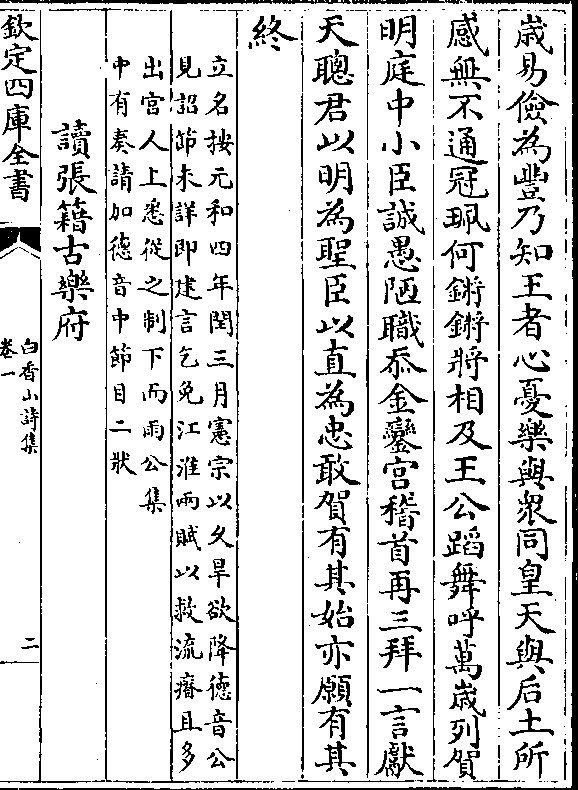 歳易儉為豐乃知王者心憂樂與衆同皇天與后土所
感無不通冠珮何鏘鏘將相及王公蹈舞呼萬歳列賀
明庭中小臣誠愚陋職忝金鑾宫稽首再三拜一言獻
天聰君以明為聖臣以直為忠敢賀有其始亦願有其
終
立名按元和四年閏三月憲宗以久旱欲降德音公
見詔節未詳即建言乞免江淮兩賦以救流瘠且多
出宫人上悉從之制下而雨公集
中有奏請加德音中節目二狀
讀張籍古樂府
欽定四庫全書
白香山詩集
卷一
二